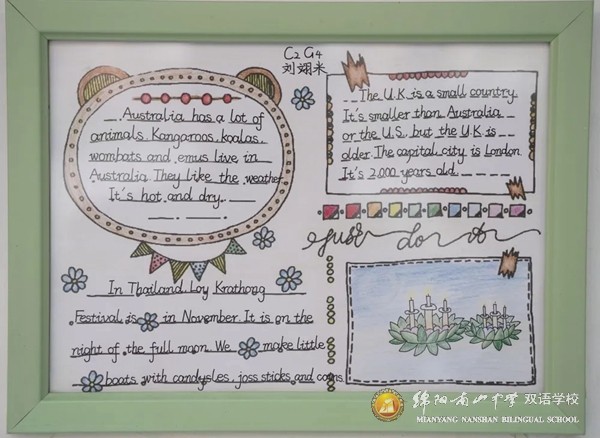 C2 G4
刘翊米
Australia has a lot of
animals. Kangaroos, koalas,
wombats and emus live in
Australia. They like the weather.
It's hot and dry.
The U.K. is a small country.
It's smaller than Australia
or the U.S. but the U.K is
older. The capital city is London
It's 2,000 years old.
just do it
In Thailand, Loy Krathong
Festival is in November. It is on the
night of the full moon. We make little
boats with candysles, joss sticks and coins
绵阳南山中学 双语学校
MIANYANG NANSHAN BILINGUAL SCHOOL